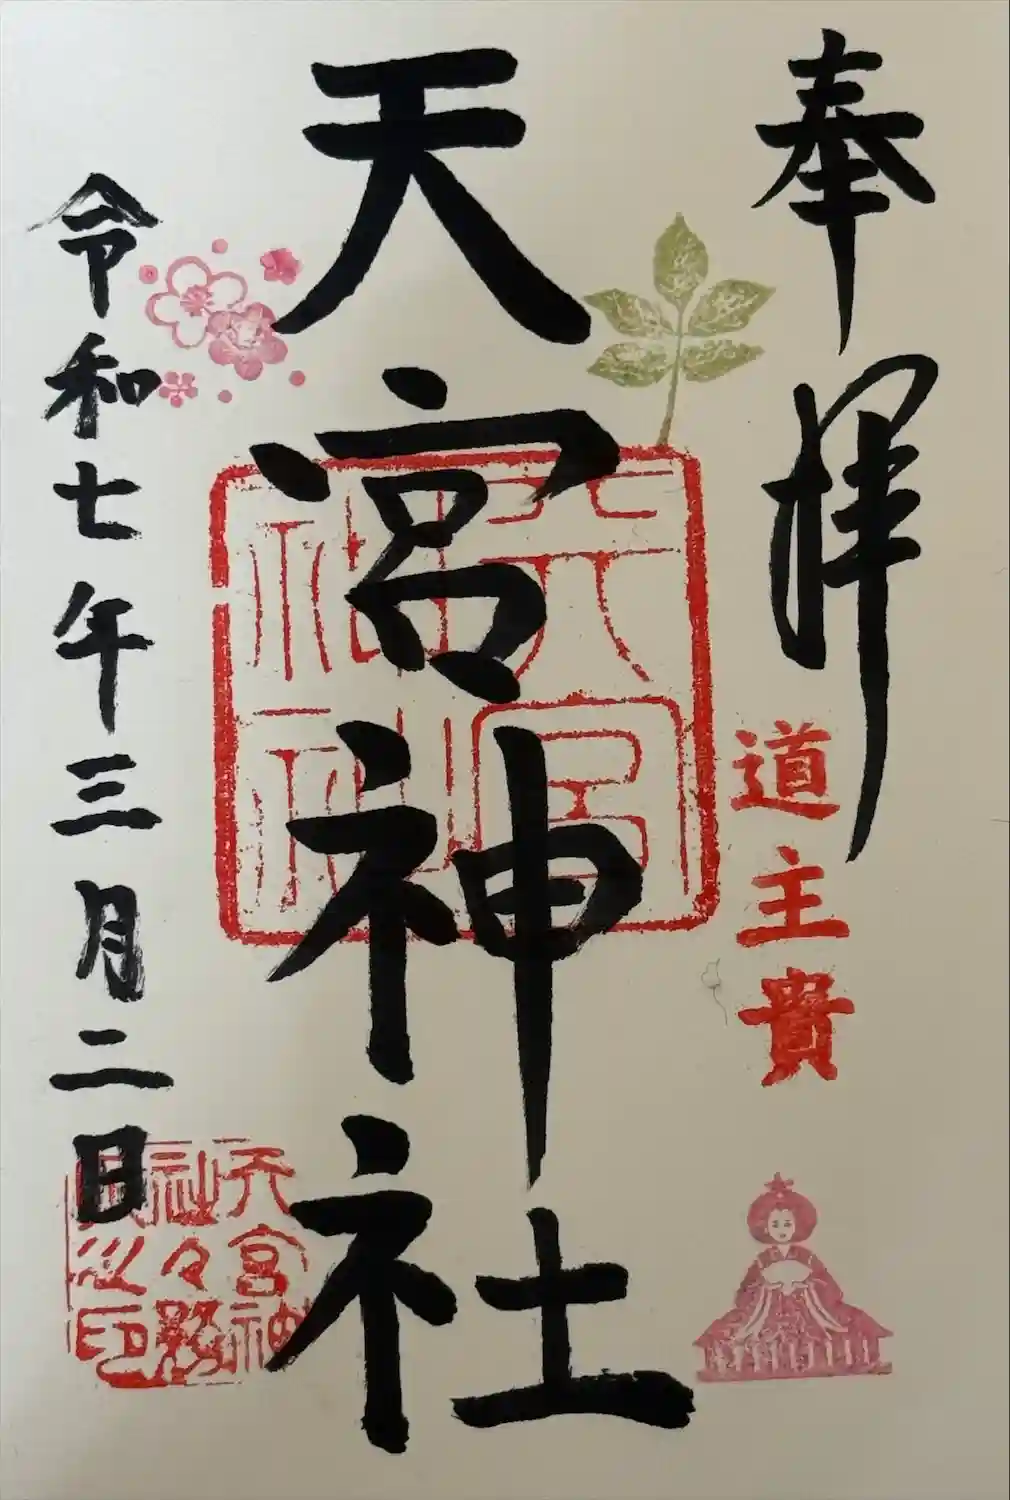 奉拝
道主貴
天宮神社
天宮神社
令和七年三月二日
天宮神社々務所之印